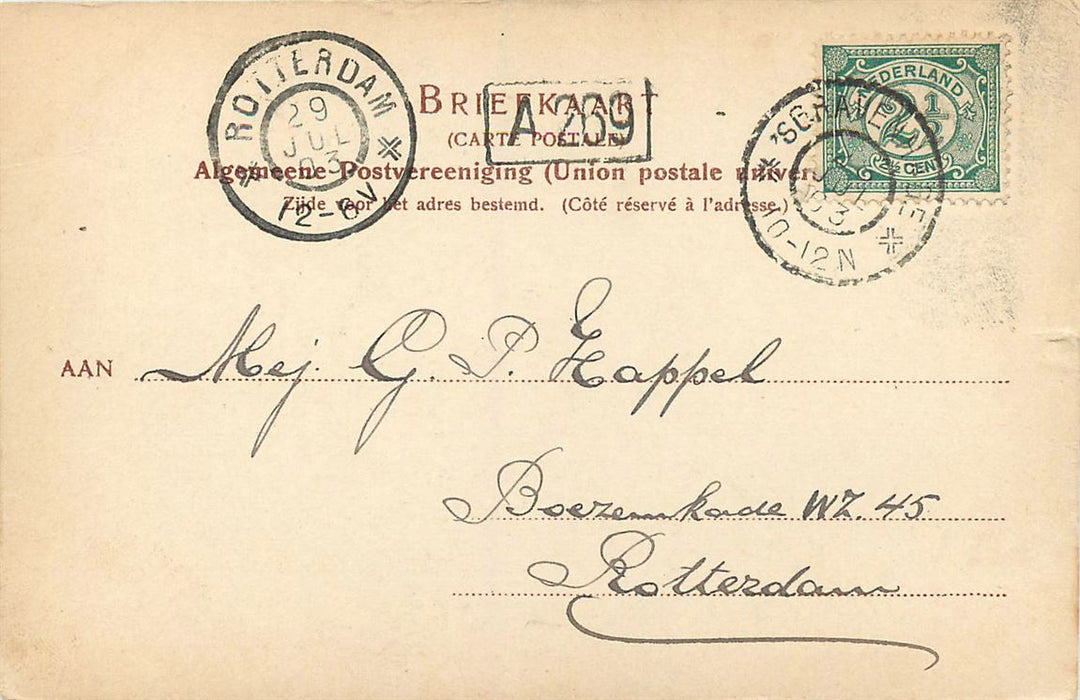 ROTTERDAM
29
JUL
03
12-6V
BRIEFKAART
A 269
(CARTE POSTALE)
Algemeene Postvereeniging (Union postale
Zijde voor het adres bestemd. (Côté réservé à l'adresse.)
NEDERLAND
2½
2½ CENT
JUL
03
10-12N
AAN Mej. G. P. Happel
Boezemkade WZ. 45
Rotterdam